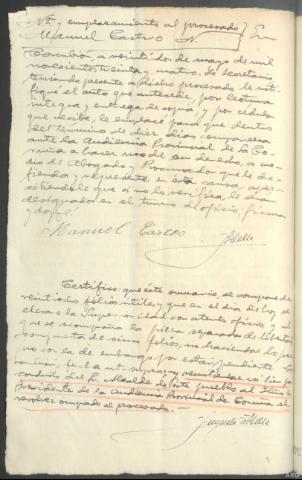 Nº y emplazamiento al procesado
Manuel Castro
En
Corcubión, a veintidós de mayo de mil
novecientos treinta y cuatro, yo Secretario
teniendo presente a dicho procesado le noti-
fiqué el auto que antecede, por lectura
íntegra y entrega de copia, y por cédula
que recibe, le emplacé para que dentro
del término de diez días comparezca
ante la Audiencia Provincial de La Co-
ruña a hacer uso de su derecho, a me-
dio de Abogado y Procurador que le de-
fienda y represente en esta causa, aper-
cibiéndole que si no lo verifica, le serán
designados en el turno de oficio; firma
y doy fé
Manuel Castro
Certifico: que este sumario, se compone de
veintiocho folios útiles y que en el día de hoy, se
eleva a la Superioridad con atento oficio, y al
que se acompaña la pieza separada de libertad
compuesta de folios, no haciéndolo por
no con la de embargo por estar pendiente.
y remitiendo
conducto del Sr. Alcalde de este pueblo al Iltmo Sr
Presidente de la Audiencia Provincial de Coruña el
revolver ocupado al procesado.